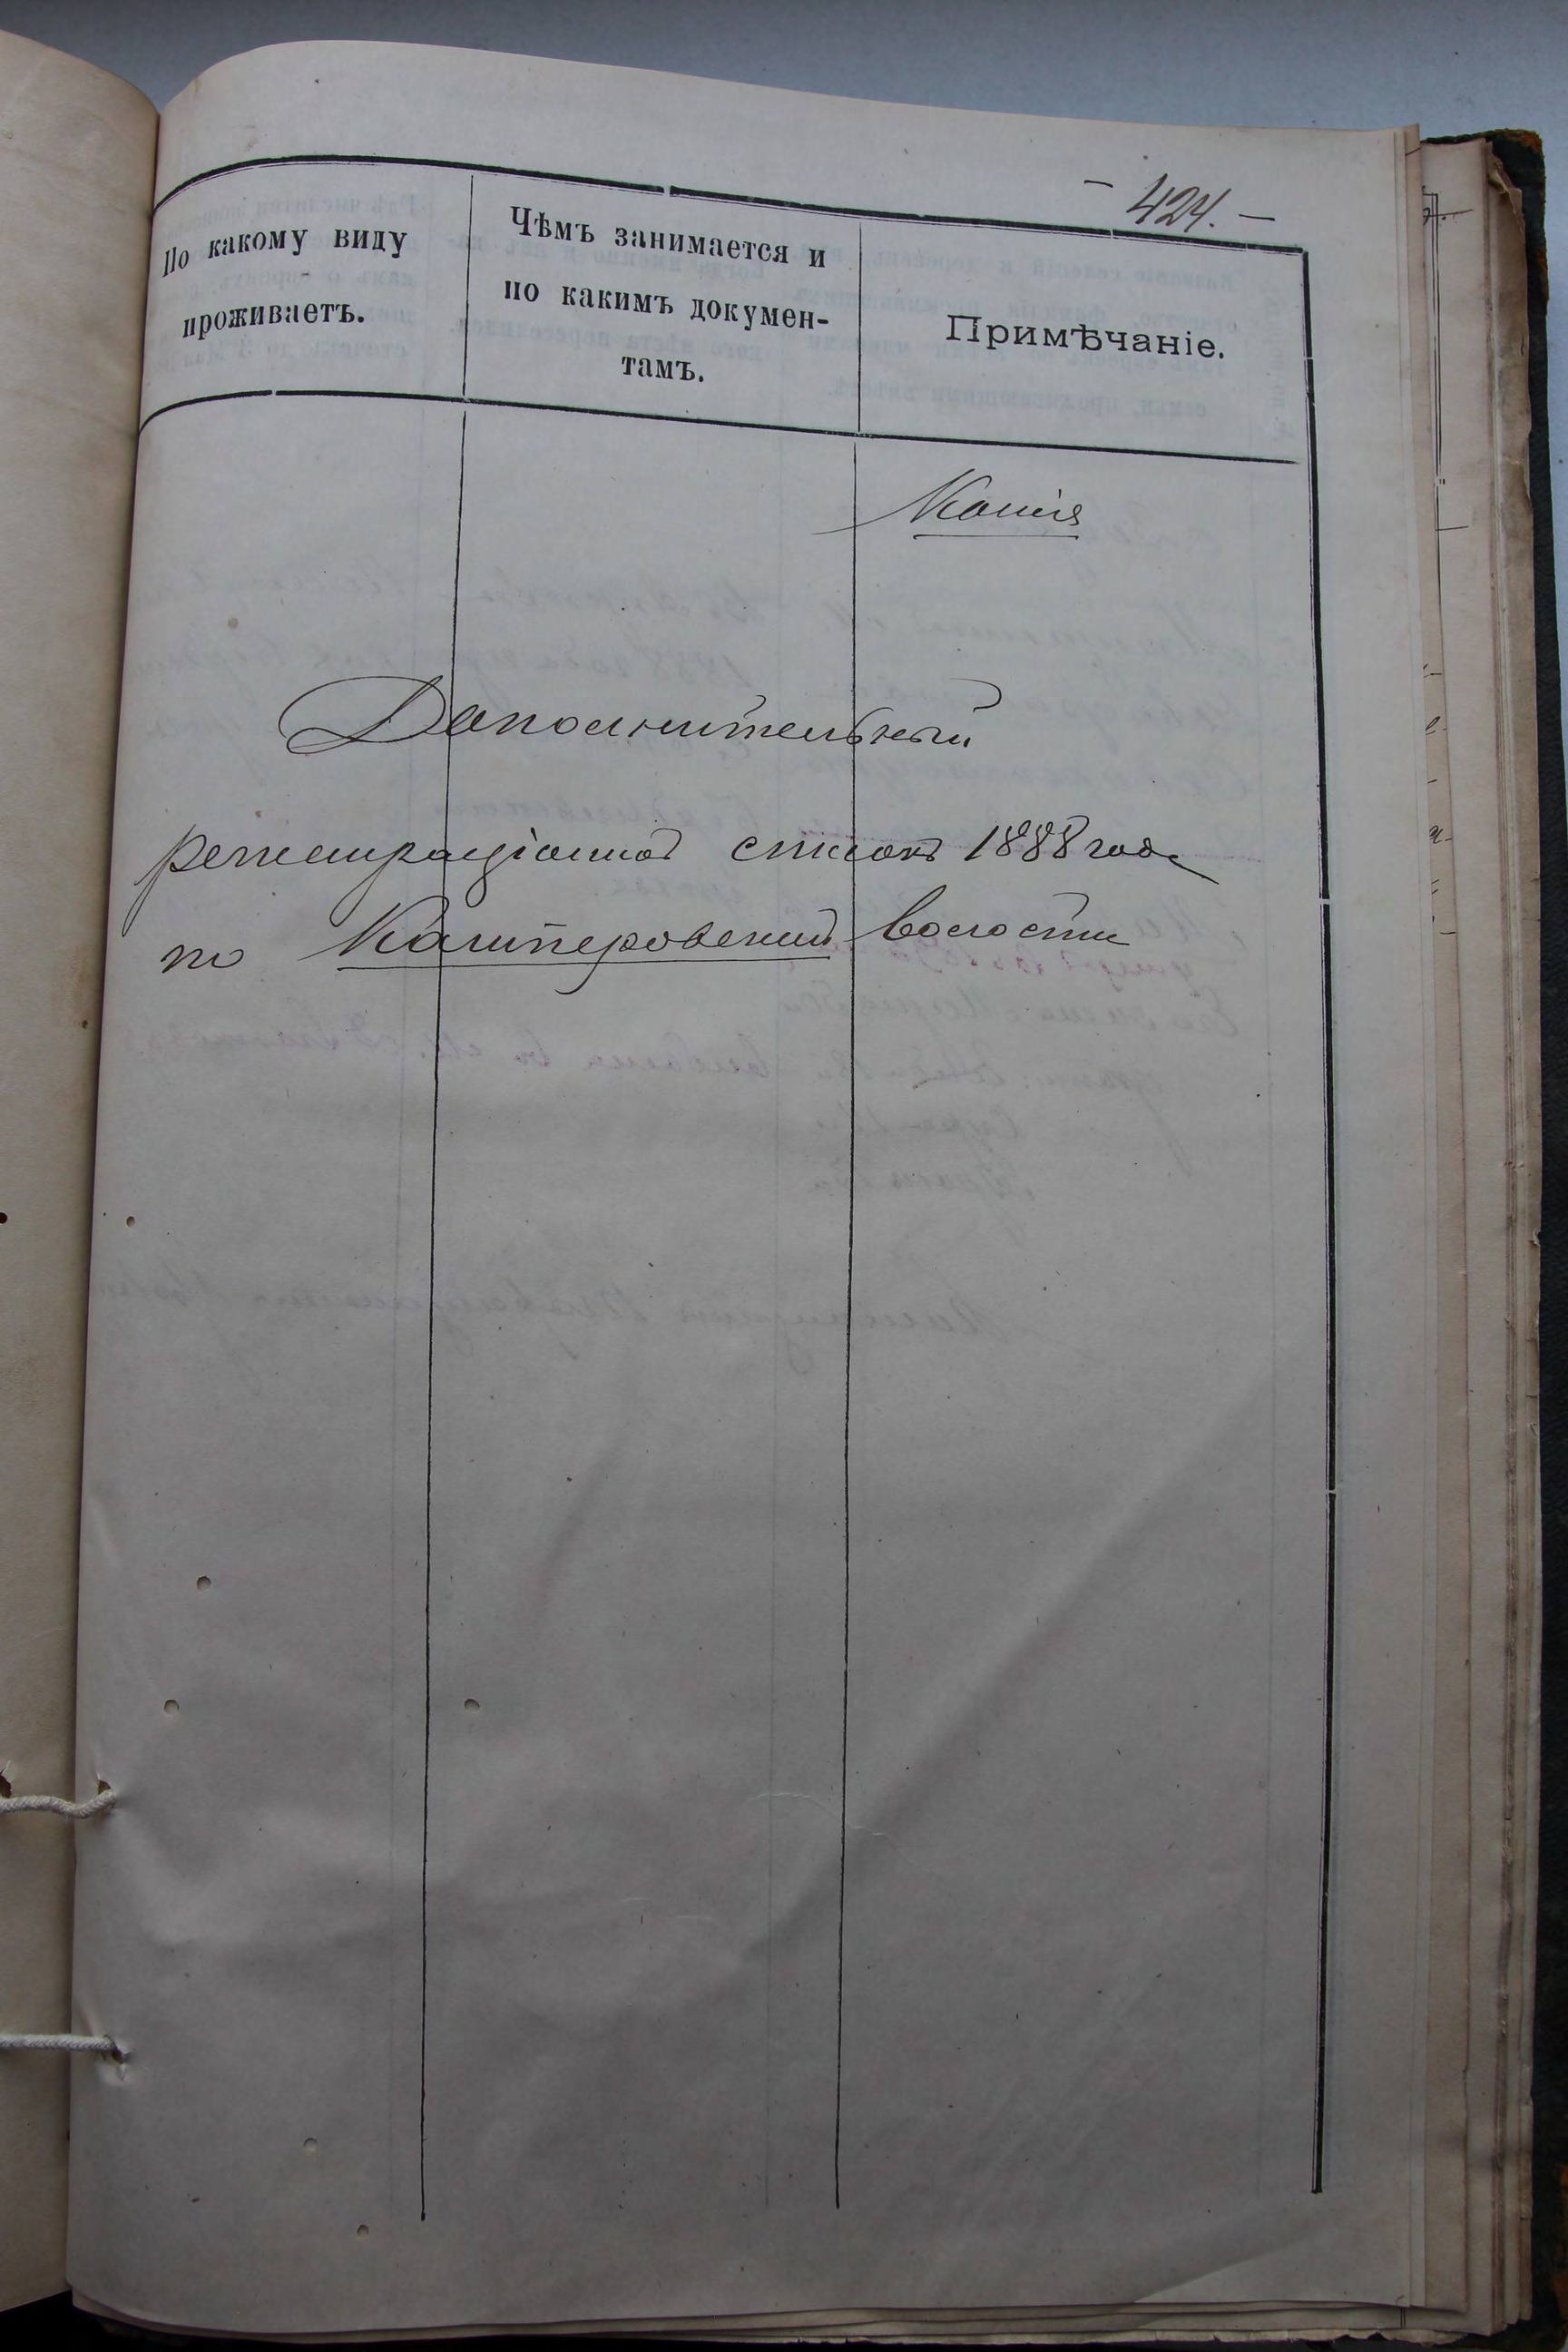 — 424. —
По какому виду
проживаетъ.
Чѣмъ занимается и
по какимъ докумен-
тамъ.
Примѣчаніе.
Копія
Дополнительный
регистраціонный списокъ 1888 года
по волости